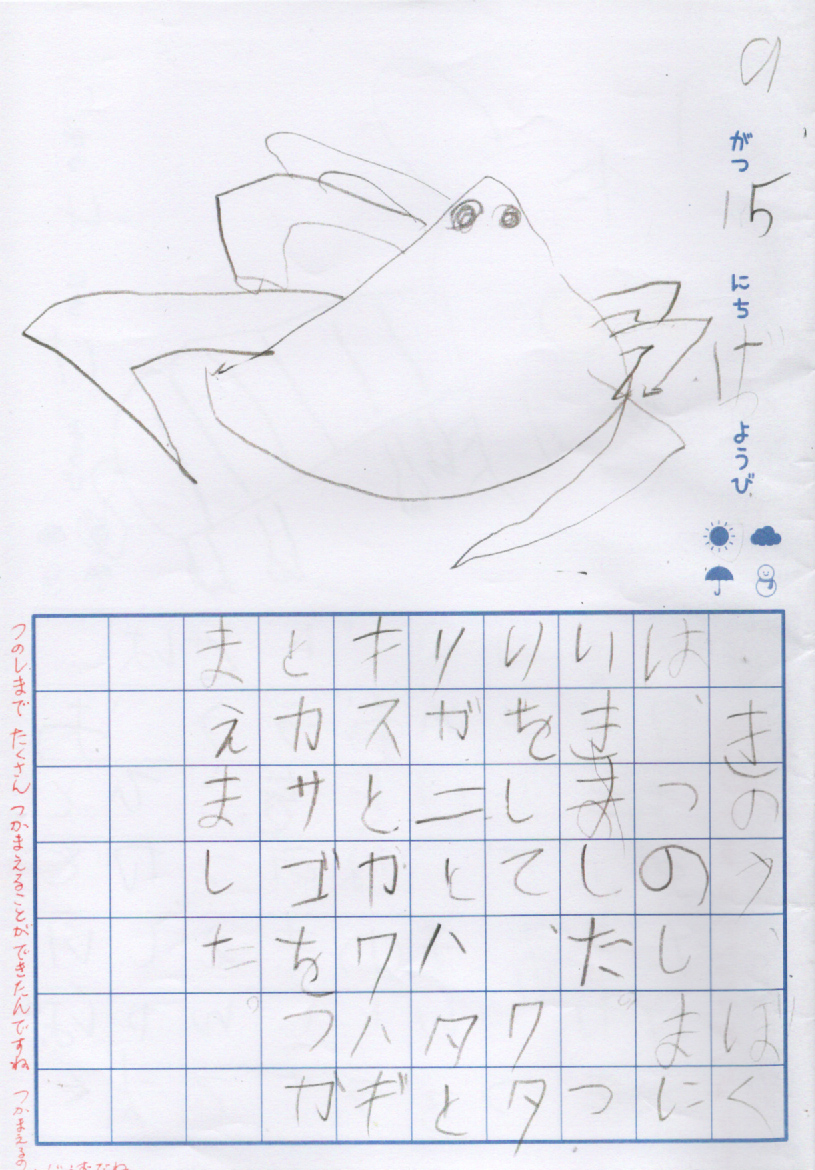 9がつ15にちげつようび
きのう、ぼく
は、つのしまに
いきました。つ
りをして、ワタ
リガニとハタと
キスとカワハギ
とカサゴをつか
まえました。
つのしまで たくさん つかまえることが できたんですね つかまえるの